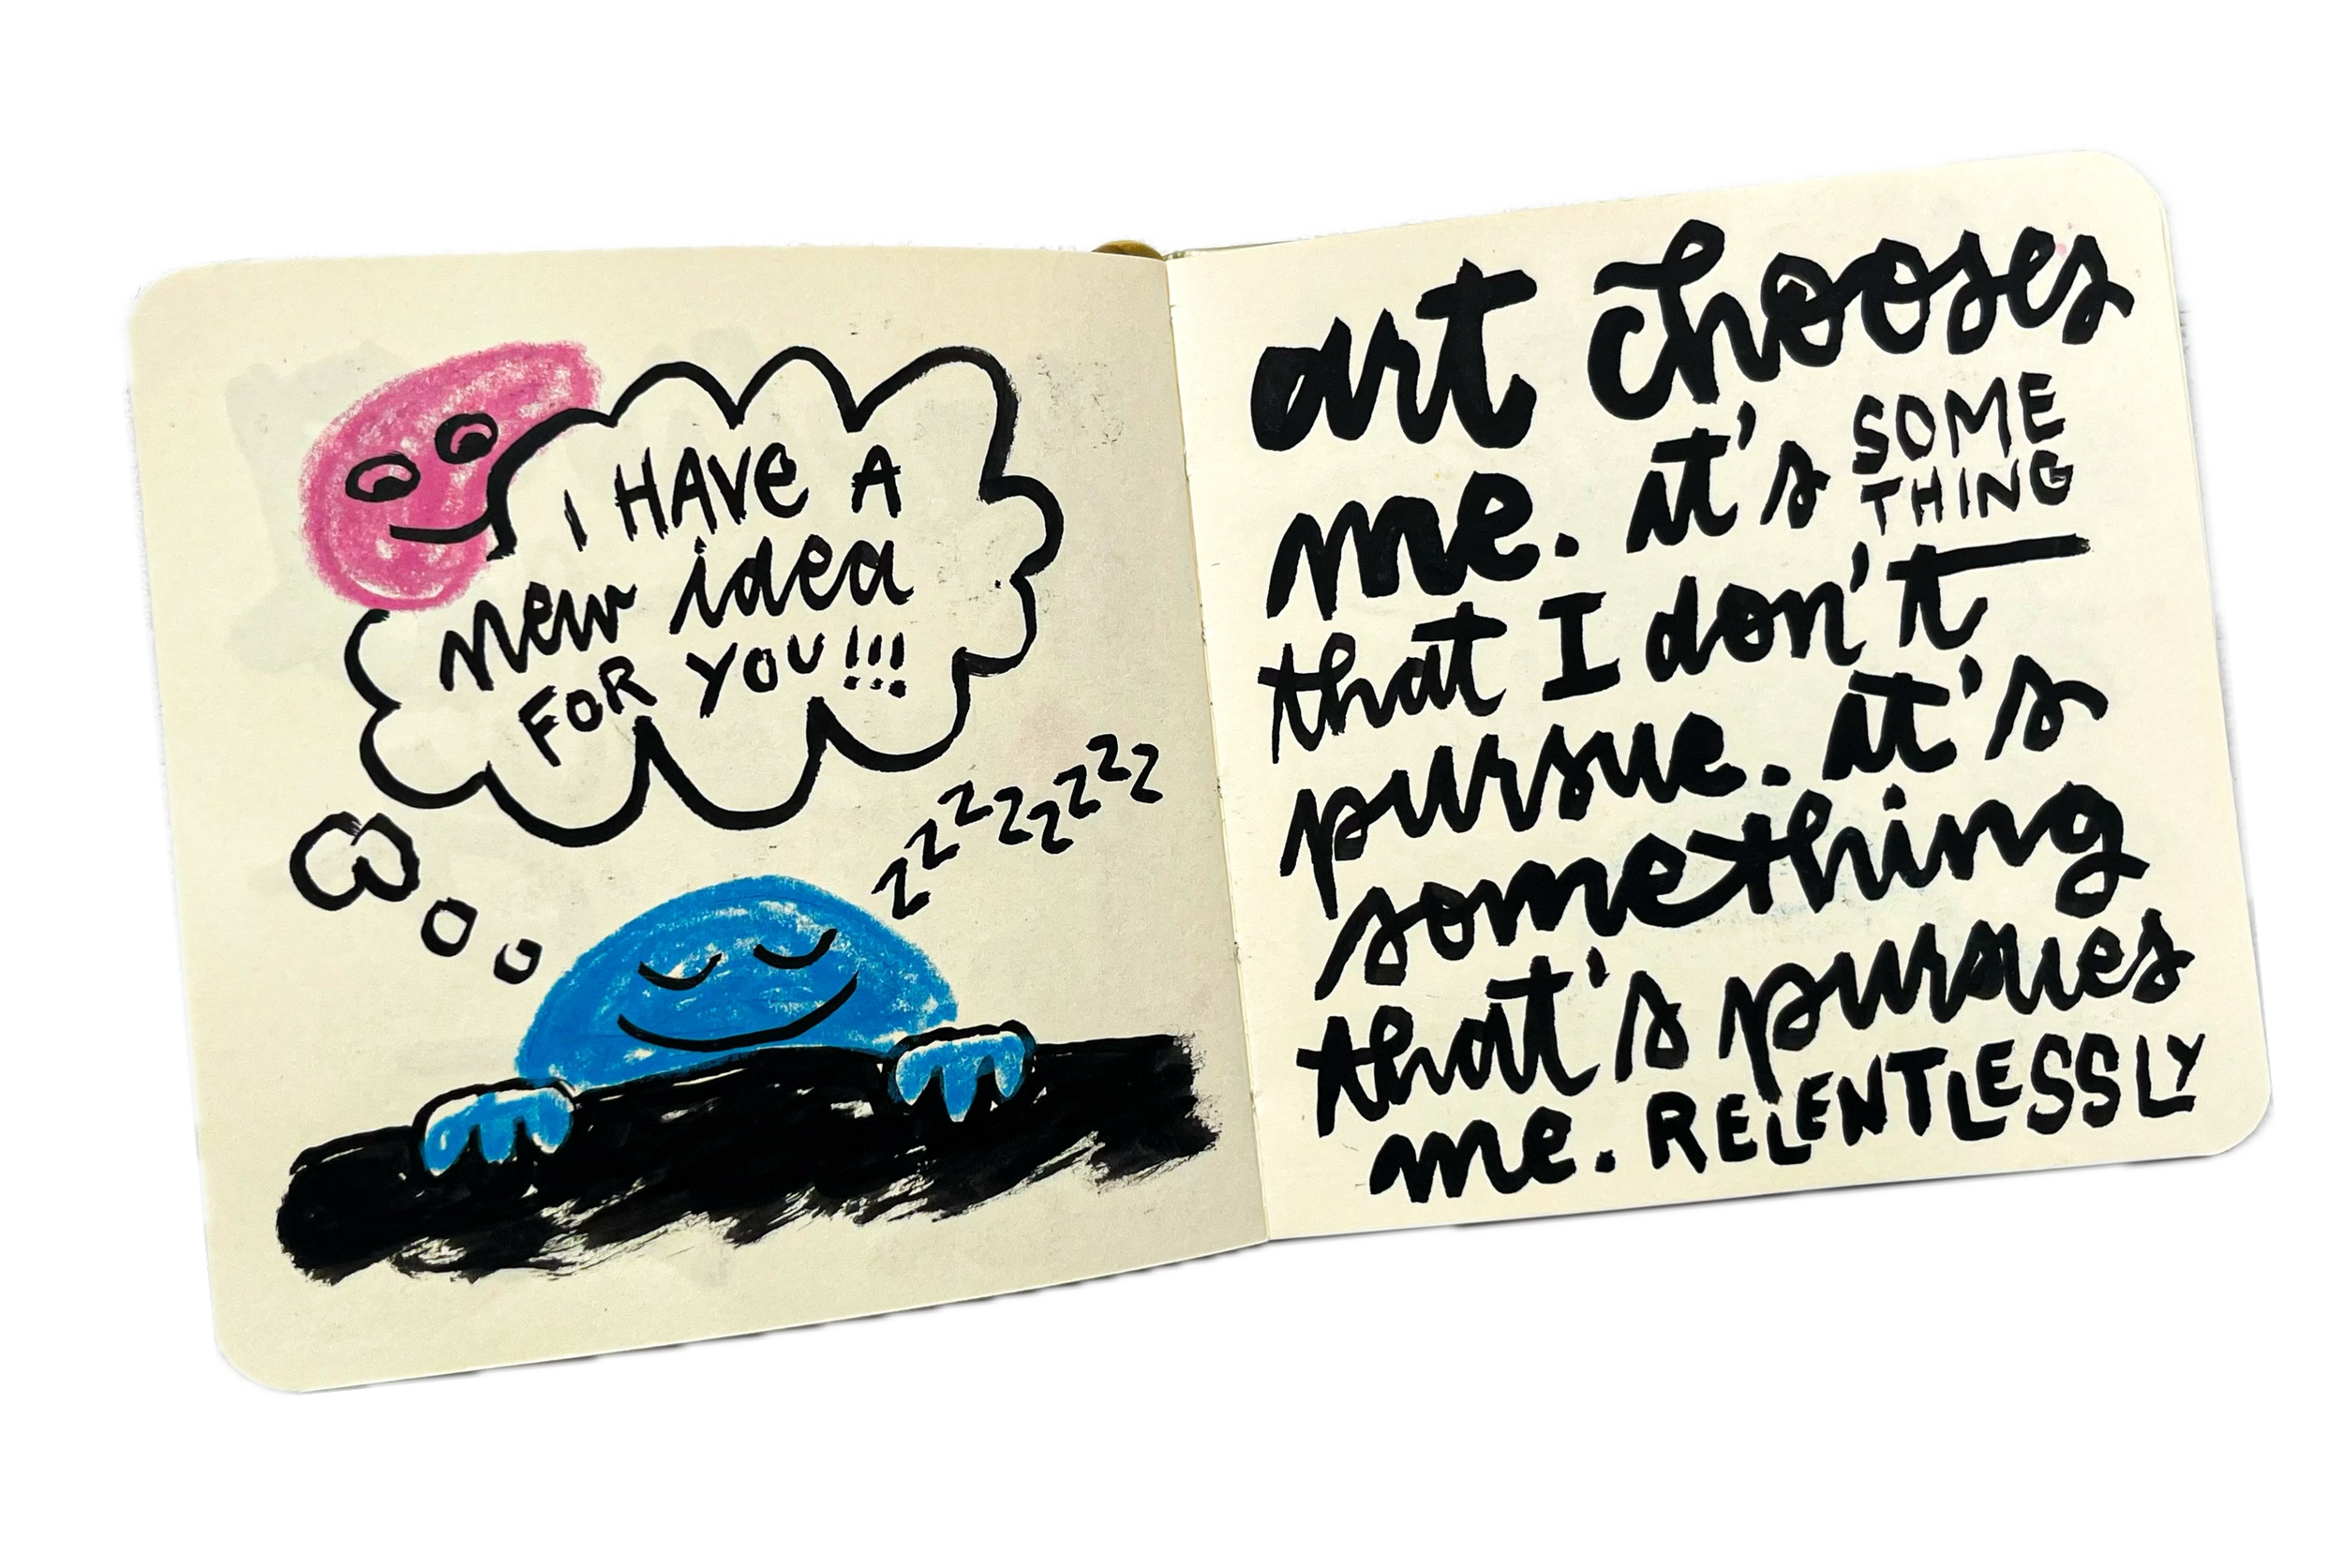 I HAVE A
new idea
FOR YOU!!!
zzzzzzzzz
art chooses
me. it's SOME
THING
that I don't
pursue. it's
something
that's pursues
me. RELENTLESSLY